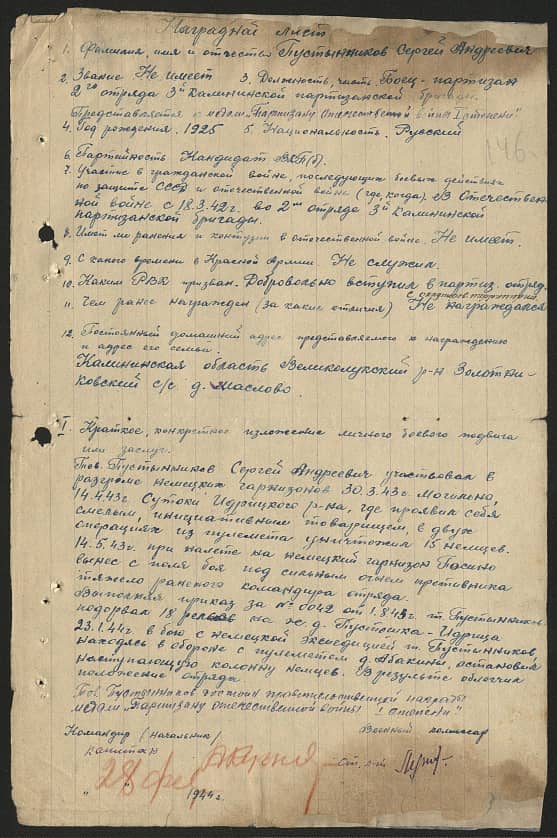 Наградной лист
1. Фамилия, имя и отчество Пустынников Сергей Андреевич
2. Звание Не имеет 3. Должность, часть. Боец-партизан
2го отряда 3й Калининской партизанской бригады.
Представляется к медали "Партизану Отечественной войны I степени"
4. Год рождения. 1925 5. Национальность. Русский
146.
6. Партийность Кандидат ВКП(б).
7. Участие в гражданской войне, последующих боевых действиях
по защите СССР и отечественной войне (где, когда). В Отечествен
ной войне с 18.3.42г. во 2ом отряде 3й Калининской
партизанской бригады.
8. Имеет ли ранения и контузии в отечественной войне. Не имеет.
9. С какого времени в Красной Армии. Не служил.
10. Каким РВК призван. Добровольно вступил в партиз. отряд.
11. Чем ранее награжден (за какие отличия) Не награждался
12. Постоянный домашний адрес представляемого к награждению
и адрес его семьи.
Калининская область Великолукский р-н Золотни-
ковский с/с д. Маслово.
I. Краткое, конкретное изложение личного боевого подвига
или заслуг.
Тов. Пустынников Сергей Андреевич участвовал в
разгроме немецких гарнизонов 30.3.43г. Могильно,
14.4.43г. Сутоки Идрицкого р-на, где проявил себя
смелым, инициативным товарищем, в двух
операциях из пулемета уничтожил 15 немцев.
14.5.43г. при налете на немецкий гарнизон Пасино
вынес с поля боя под сильным огнем противника
тяжело раненого командира отряда.
Выполняя приказ за № 0042 от 1.8.43г. т. Пустынников
подорвал 18 рельс на ж.д. Пустошка-Идрица
23.1.44г в бою с немецкой экспедицией т. Пустынников,
находясь в обороне с пулеметом д. Абакини, остановил
наступающую колонну немцев. В результе облегчил
положение отряда.
Тов. Пустынников достоин правительственной награды
медали "Партизану отечественной войны I степени"
Командир (начальник) Военный комиссар
капитан ст. л-т
28 фев
" " 1944г.